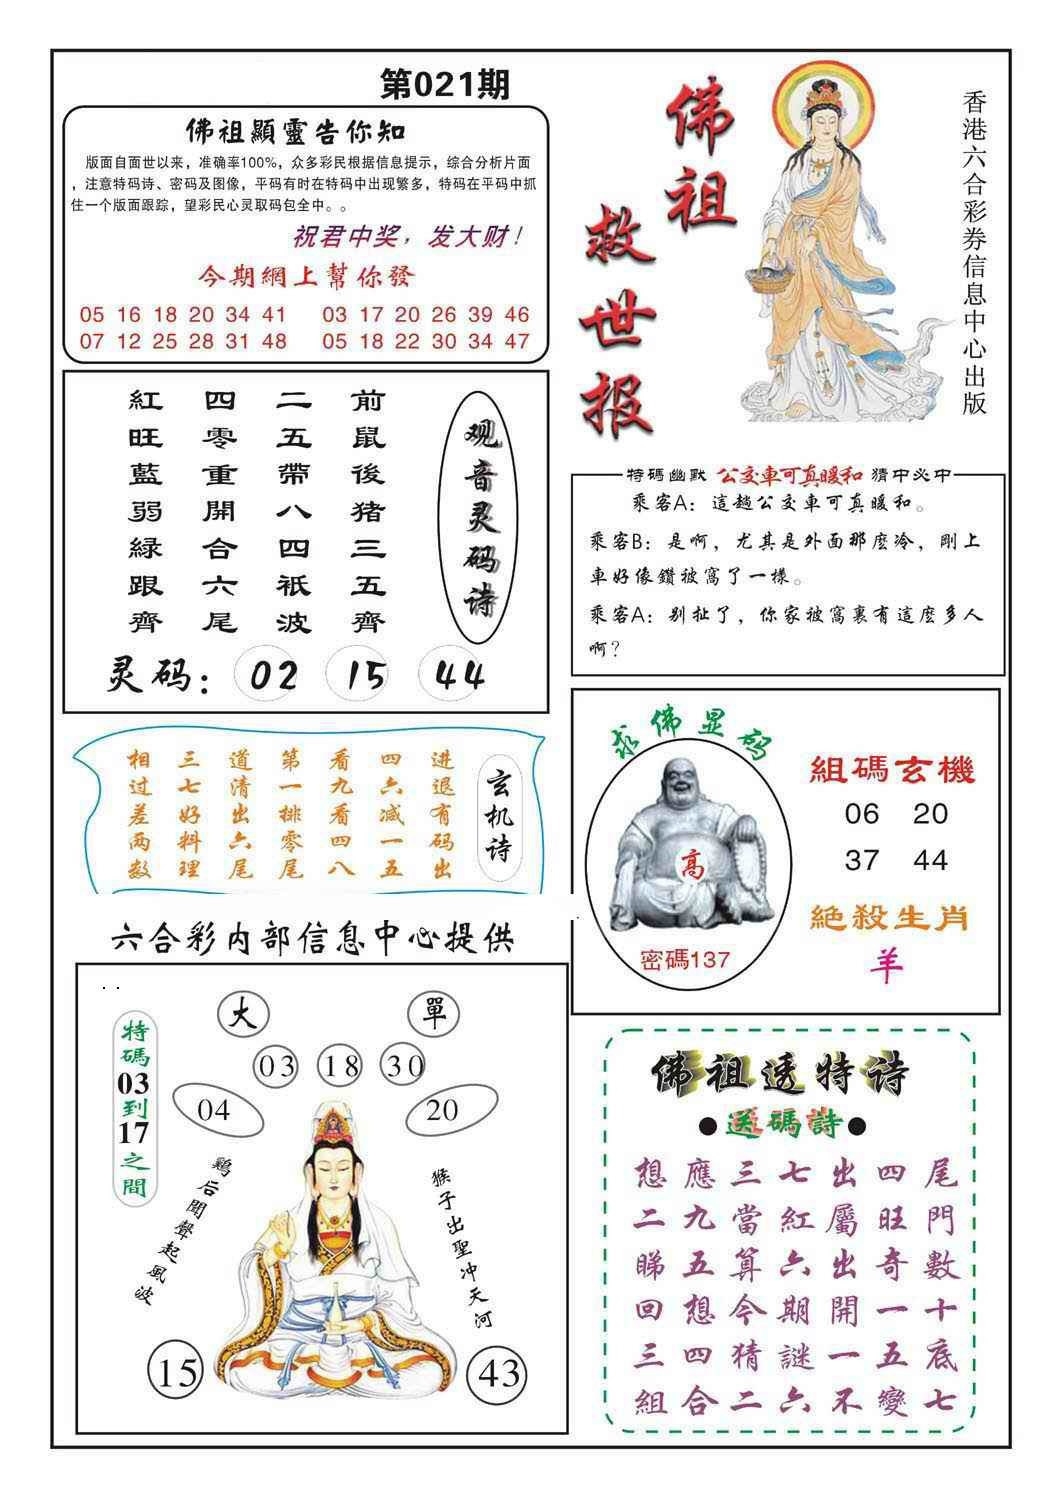 第021期
佛祖顯靈告你知
版面自面世以来，准确率100%，众多彩民根据信息提示，综合分析片面
，注意特码诗、密码及图像，平码有时在特码中出现繁多，特码在平码中抓
住一个版面跟踪，望彩民心灵取码包全中。。
祝君中奖，发大财！
今期網上幫你發
05 16 18 20 34 41 03 17 20 26 39 46
07 12 25 28 31 48 05 18 22 30 34 47
佛祖
救世报
香港六合彩券信息中心出版
观音灵码诗
前鼠後猪三五齊
二五帶八四衹波
四零重開合六尾
紅旺藍弱緑跟齊
灵码：02 15 44
特碼幽默 公交車可真暖和 猜中必中
乘客A：這趟公交車可真暖和。
乘客B：是啊，尤其是外面那麽冷，剛上
車好像鑽被窩了一樣。
乘客A：别扯了，你家被窩裏有這麽多人
啊？
玄机诗
进退有码出
四六减一五
看九看四八
第一排零尾
道清出六尾
三七好料理
相过差两数
求佛显码
高
密碼137
組碼玄機
06 20
37 44
絕殺生肖
羊
六合彩内部信息中心提供
大 單
03 18 30
04 20
特碼03到17之間
鷄后聞聲起風波
猴子出聖冲天河
15 43
佛祖透特诗
●送碼詩●
想應三七出四尾
二九當紅屬旺門
睇五算六出奇數
回想今期開一十
三四猜謎一五底
組合二六不變七